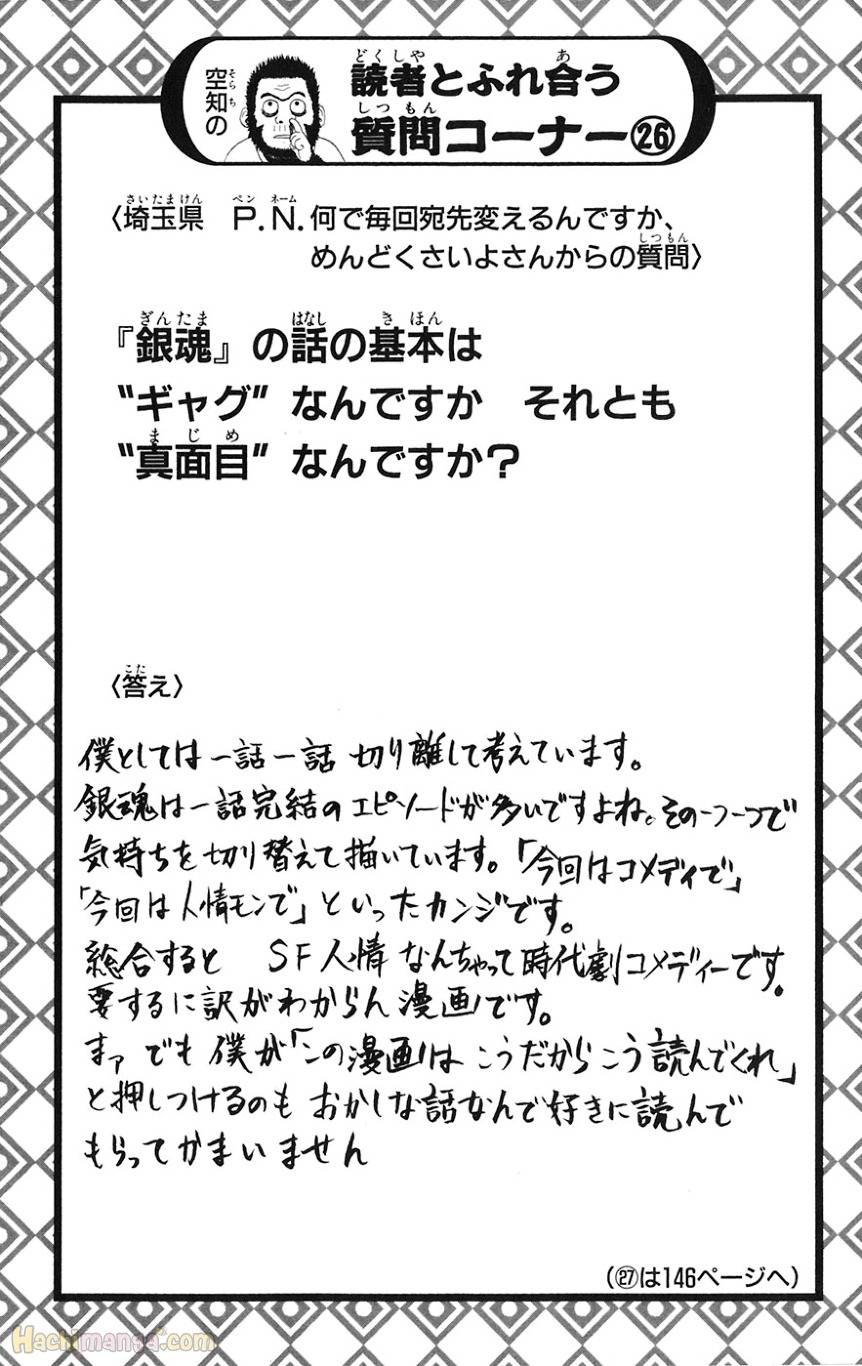 空知の
読者とふれ合う
質問コーナー㉖
〈埼玉県 P.N.何で毎回宛先変えるんですか、
めんどくさいよさんからの質問〉
『銀魂』の話の基本は
“ギャグ”なんですか それとも
“真面目”なんですか？
〈答え〉
僕としては一話一話 切り離して考えています。
銀魂は一話完結のエピソードが多いですよね。その一つ一つで
気持ちを切り替えて描いています。「今回はコメディで」
「今回は人情モンで」といったカンジです。
総合すると SF人情なんちゃって時代劇コメディーです。
要するに訳がわからん漫画です。
まァ でも僕が「この漫画はこうだからこう読んでくれ」
と押しつけるのもおかしな話なんで好きに読んで
もらってかまいません
（㉗は146ページへ）
Hachimanga.com